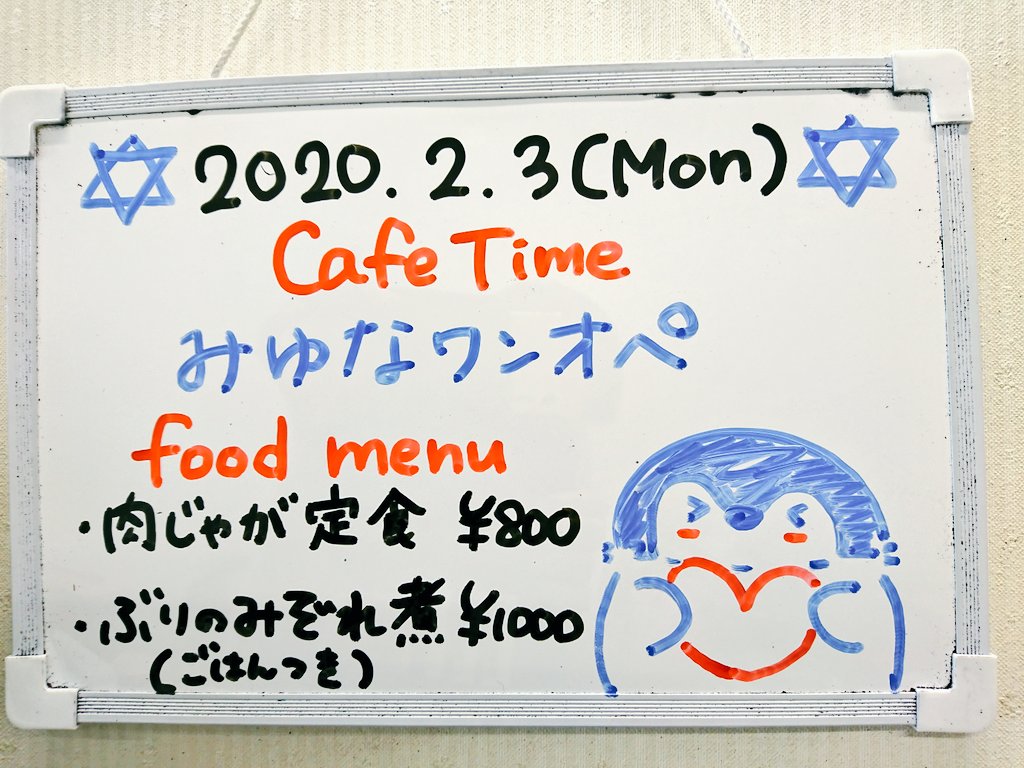 2020.2.3(Mon)
Cafe Time
みゆなワンオペ
food menu
・肉じゃが定食 ¥800
・ぶりのみぞれ煮 ¥1000
(ごはんつき)